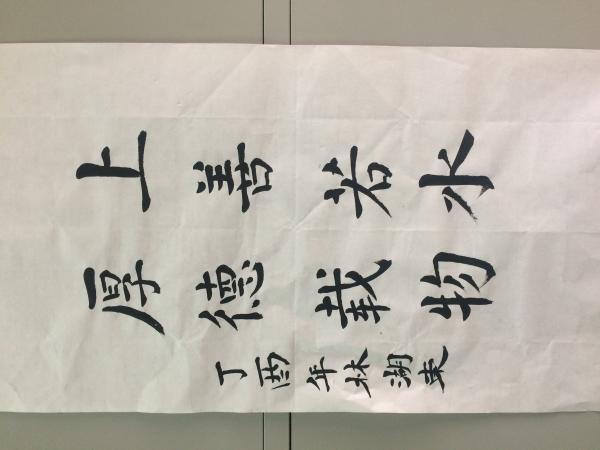 上善若水
厚德载物
丁酉年林湖东